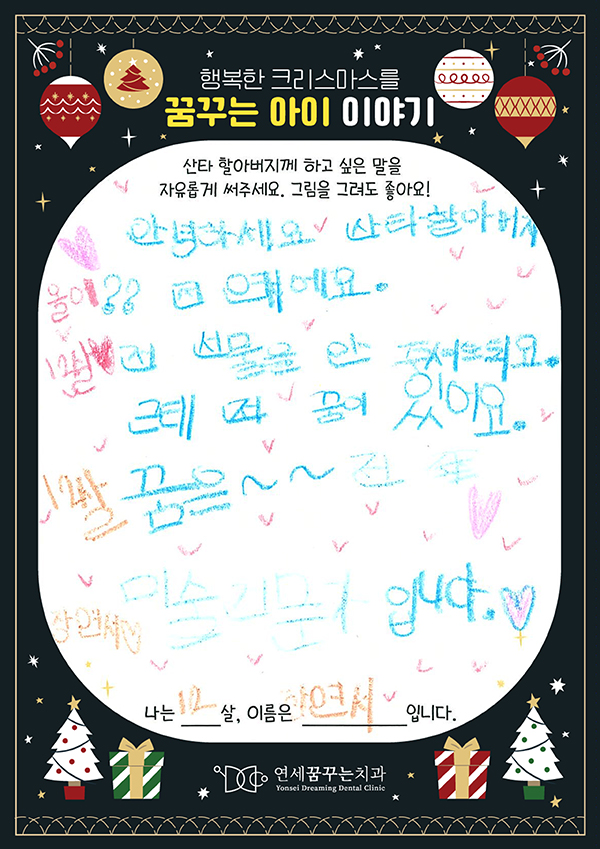 행복한 크리스마스를
꿈꾸는 아이 이야기
산타 할아버지께 하고 싶은 말을
자유롭게 써주세요. 그림을 그려도 좋아요!
안녕하세요 산타할아버지
저 연세에요.
전 선물을 안 주셔도되요.
근데 저 꿈이 있어요.
12살 꿈은~~ 전
미술 입니다.
장연서
나는 12살, 이름은 장연서입니다.
연세꿈꾸는치과
Yonsei Dreaming Dental Clinic